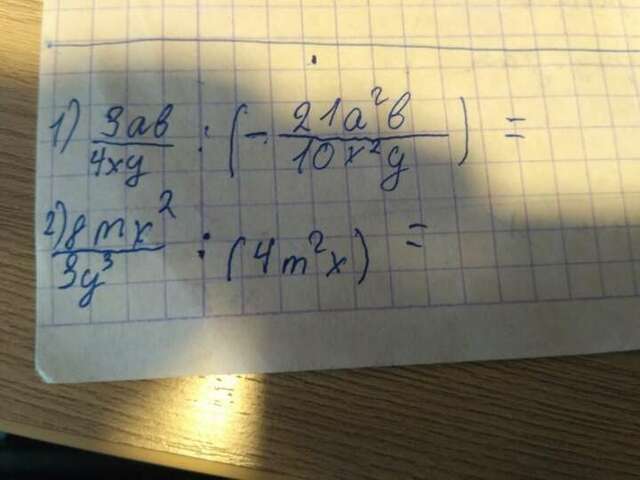 1) 3ab/4xy : (- 21a²b/10x²y) =
2) 8mx²/3y³ : (4m²x) =